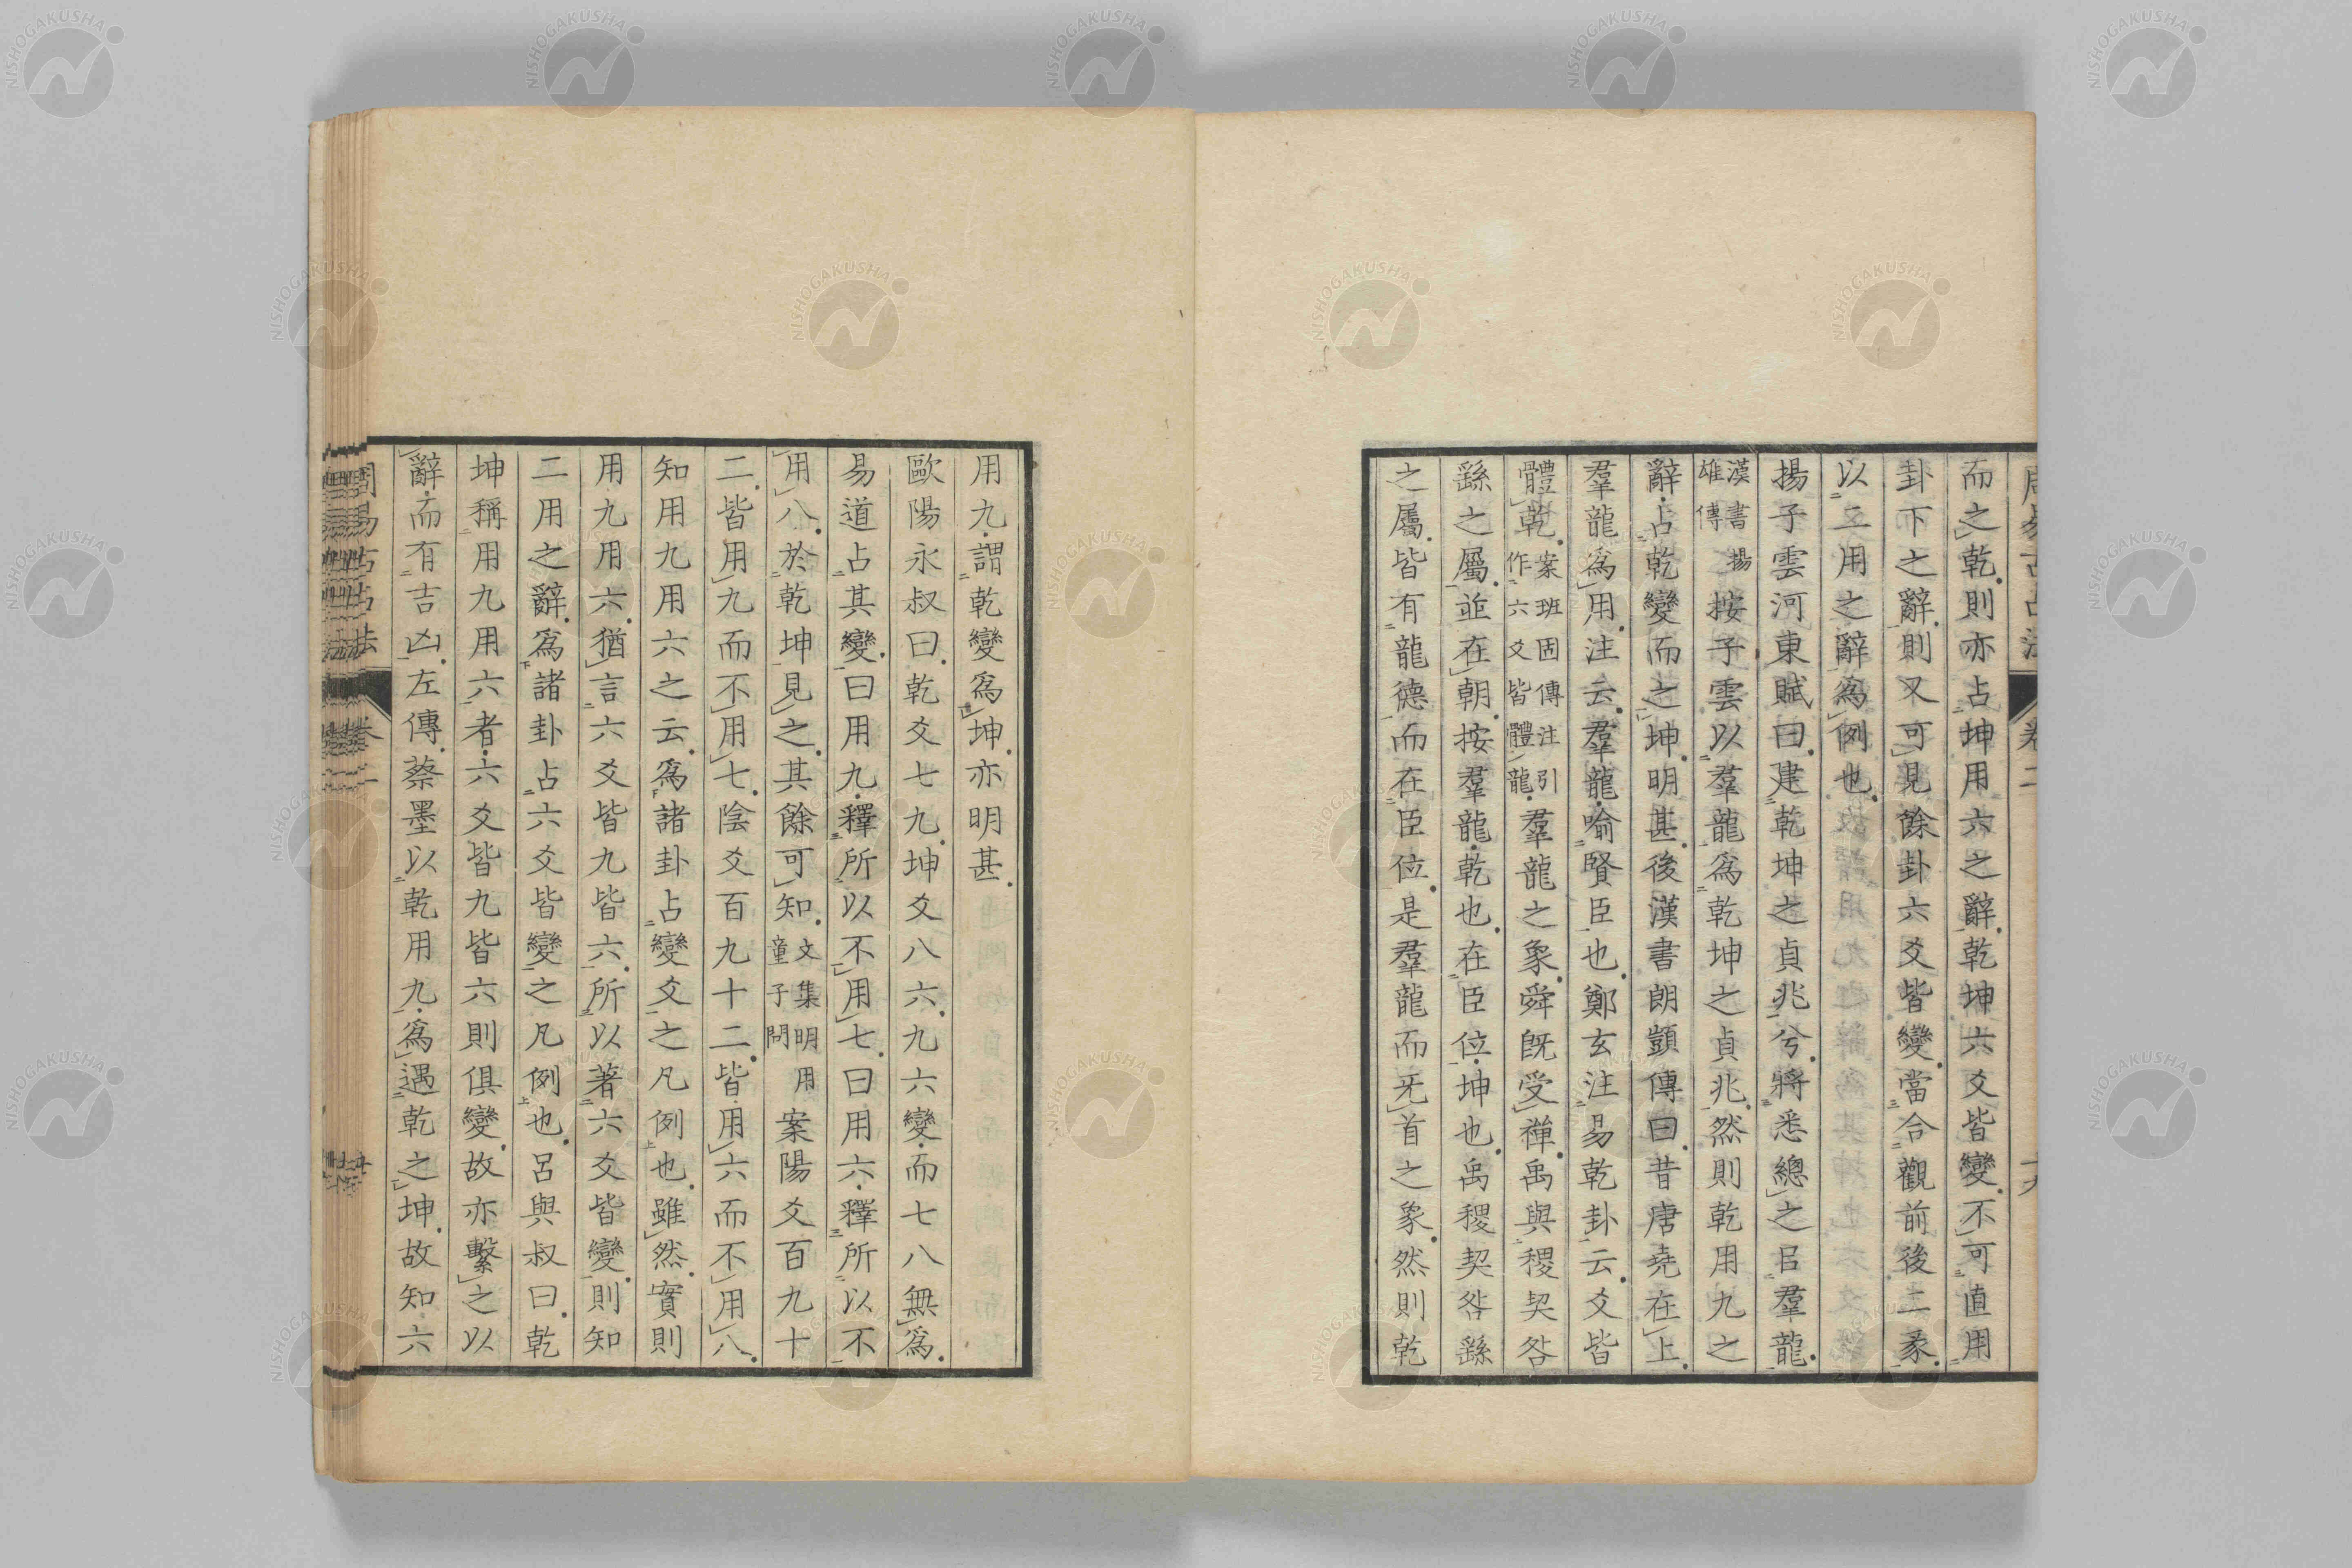 而之乾則亦占坤用六之辭乾坤六爻皆變不可直用
卦下之辭則又可見餘卦六爻皆變當合觀前後二彖
以二用之辭為例也
揚子雲河東賦曰建乾坤之貞兆兮將悉總之㠯羣龍
漢書揚雄傳按子雲以羣龍為乾坤之貞兆然則乾用九之
辭占乾變而之坤明甚後漢書朗顗傳曰昔唐堯在上
羣龍為用注云羣龍喻賢臣也鄭玄注易乾卦云爻皆
體乾案班固傳注引作六爻皆體龍羣龍之象舜既受禪禹與稷契咎
繇之屬並在朝按羣龍乾也在臣位坤也禹稷契咎繇
之屬皆有龍德而在臣位是羣龍而无首之象然則乾
用九謂乾變為坤亦明甚
歐陽永叔曰乾爻七九坤爻八六九六變而七八無為
易道占其變曰用九釋所以不用七曰用六釋所以不
用八於乾坤見之其餘可知文集明用童子問案陽爻百九十
二皆用九而不用七陰爻百九十二皆用六而不用八
知用九用六之云為諸卦占變爻之凡例也雖然實則
用九用六猶言六爻皆九皆六所以著六爻皆變則知
二用之辭為諸卦占六爻皆變之凡例也呂與叔曰乾
坤稱用九用六者六爻皆九皆六則俱變故亦繫之以
辭而有吉凶左傳蔡墨以乾用九為遇乾之坤故知六
NISHOGAKUSHA